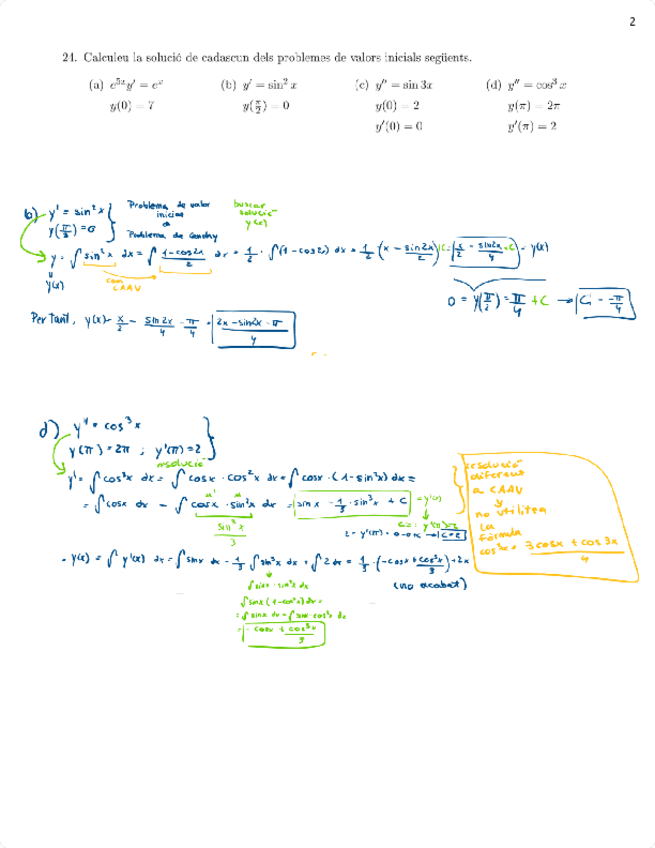 2
24. Calculeu la solució de cadascun dels problemes de valors inicials següents.
(a) e^{5x}y' = e^x (b) y' = sin² x (c) y'' = sin 3x (d) y'' = cos³ x
y(0) = 7 y(π/2) = 0 y(0) = 2 y(π) = 2π
y'(0) = 0 y'(π) = 2
b) y' = sin² x Problema de valor buscar
y(π/2) = 0 inicial solució
o y(x)
Problema de Cauchy
y = ∫ sin² x dx = ∫ (1-cos2x)/2 dx = 1/2 · ∫(1-cos2x) dx = 1/2 (x - sin2x/2) + C = x/2 - sin2x/4 + C = y(x)
y(x) com
CAAV
0 = y(π/2) = π/4 + C → C = -π/4
Per tant, y(x) = x/2 - sin2x/4 - π/4 = (2x - sin2x - π)/4
d) y'' = cos³ x
y(π) = 2π ; y'(π) = 2
resolució
y' = ∫ cos³x dx = ∫ cosx · cos²x dx = ∫ cosx · (1-sin²x) dx =
= ∫ cosx dx - ∫ cosx · sin²x dx = sinx - 1/3 · sin³x + C = y'(x)
sin³x/3
2 = y'(π) = 0-0+C → C=2
y(x) = ∫ y'(x) dx = ∫ sinx dx - 1/3 ∫ sin³x dx + ∫ 2 dx = 1/3 · (-cosx + cos³x/3) + 2x
(no acabat)
∫ sinx · sin²x dx
∫ sinx (1-cos²x) dx =
= ∫ sinx dx - ∫ sinx · cos²x dx
= - cosx + cos³x/3
resolució
diferent
a CAAV
y
no utilitza
la
fórmula
cos³x = (3cosx + cos3x)/4